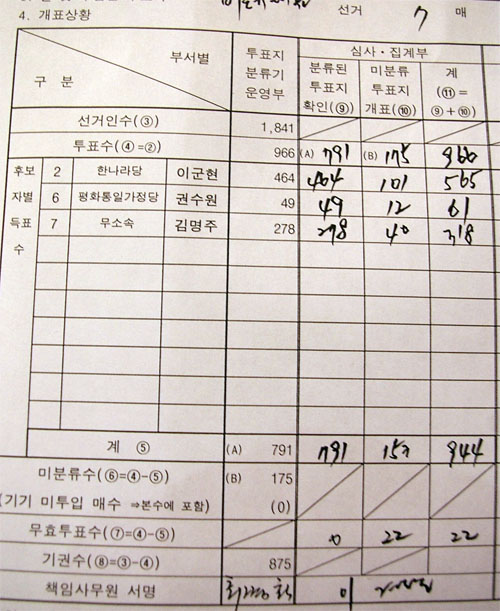 선거 7 매
4. 개표상황
부서별
구 분
투표지 분류기 운영부
심사·집계부
분류된 투표지 확인(⑨)
미분류 투표지 개표(⑩)
계 (⑪= ⑨+⑩)
선거인수(③) 1,841
투표수(④=②) 966 (A) 791 (B) 175 966
후보자별 득표수
2 한나라당 이군현 464 464 101 565
6 평화통일가정당 권수원 49 49 12 61
7 무소속 김명주 278 278 40 318
계 ⑤ (A) 791 791 153 944
미분류수(⑥=④-⑤) (B) 175
(기기 미투입 매수 ⇒본수에 포함) (0)
무효투표수(⑦=④-⑤) 0 22 22
기권수(⑧=③-④) 875
책임사무원 서명